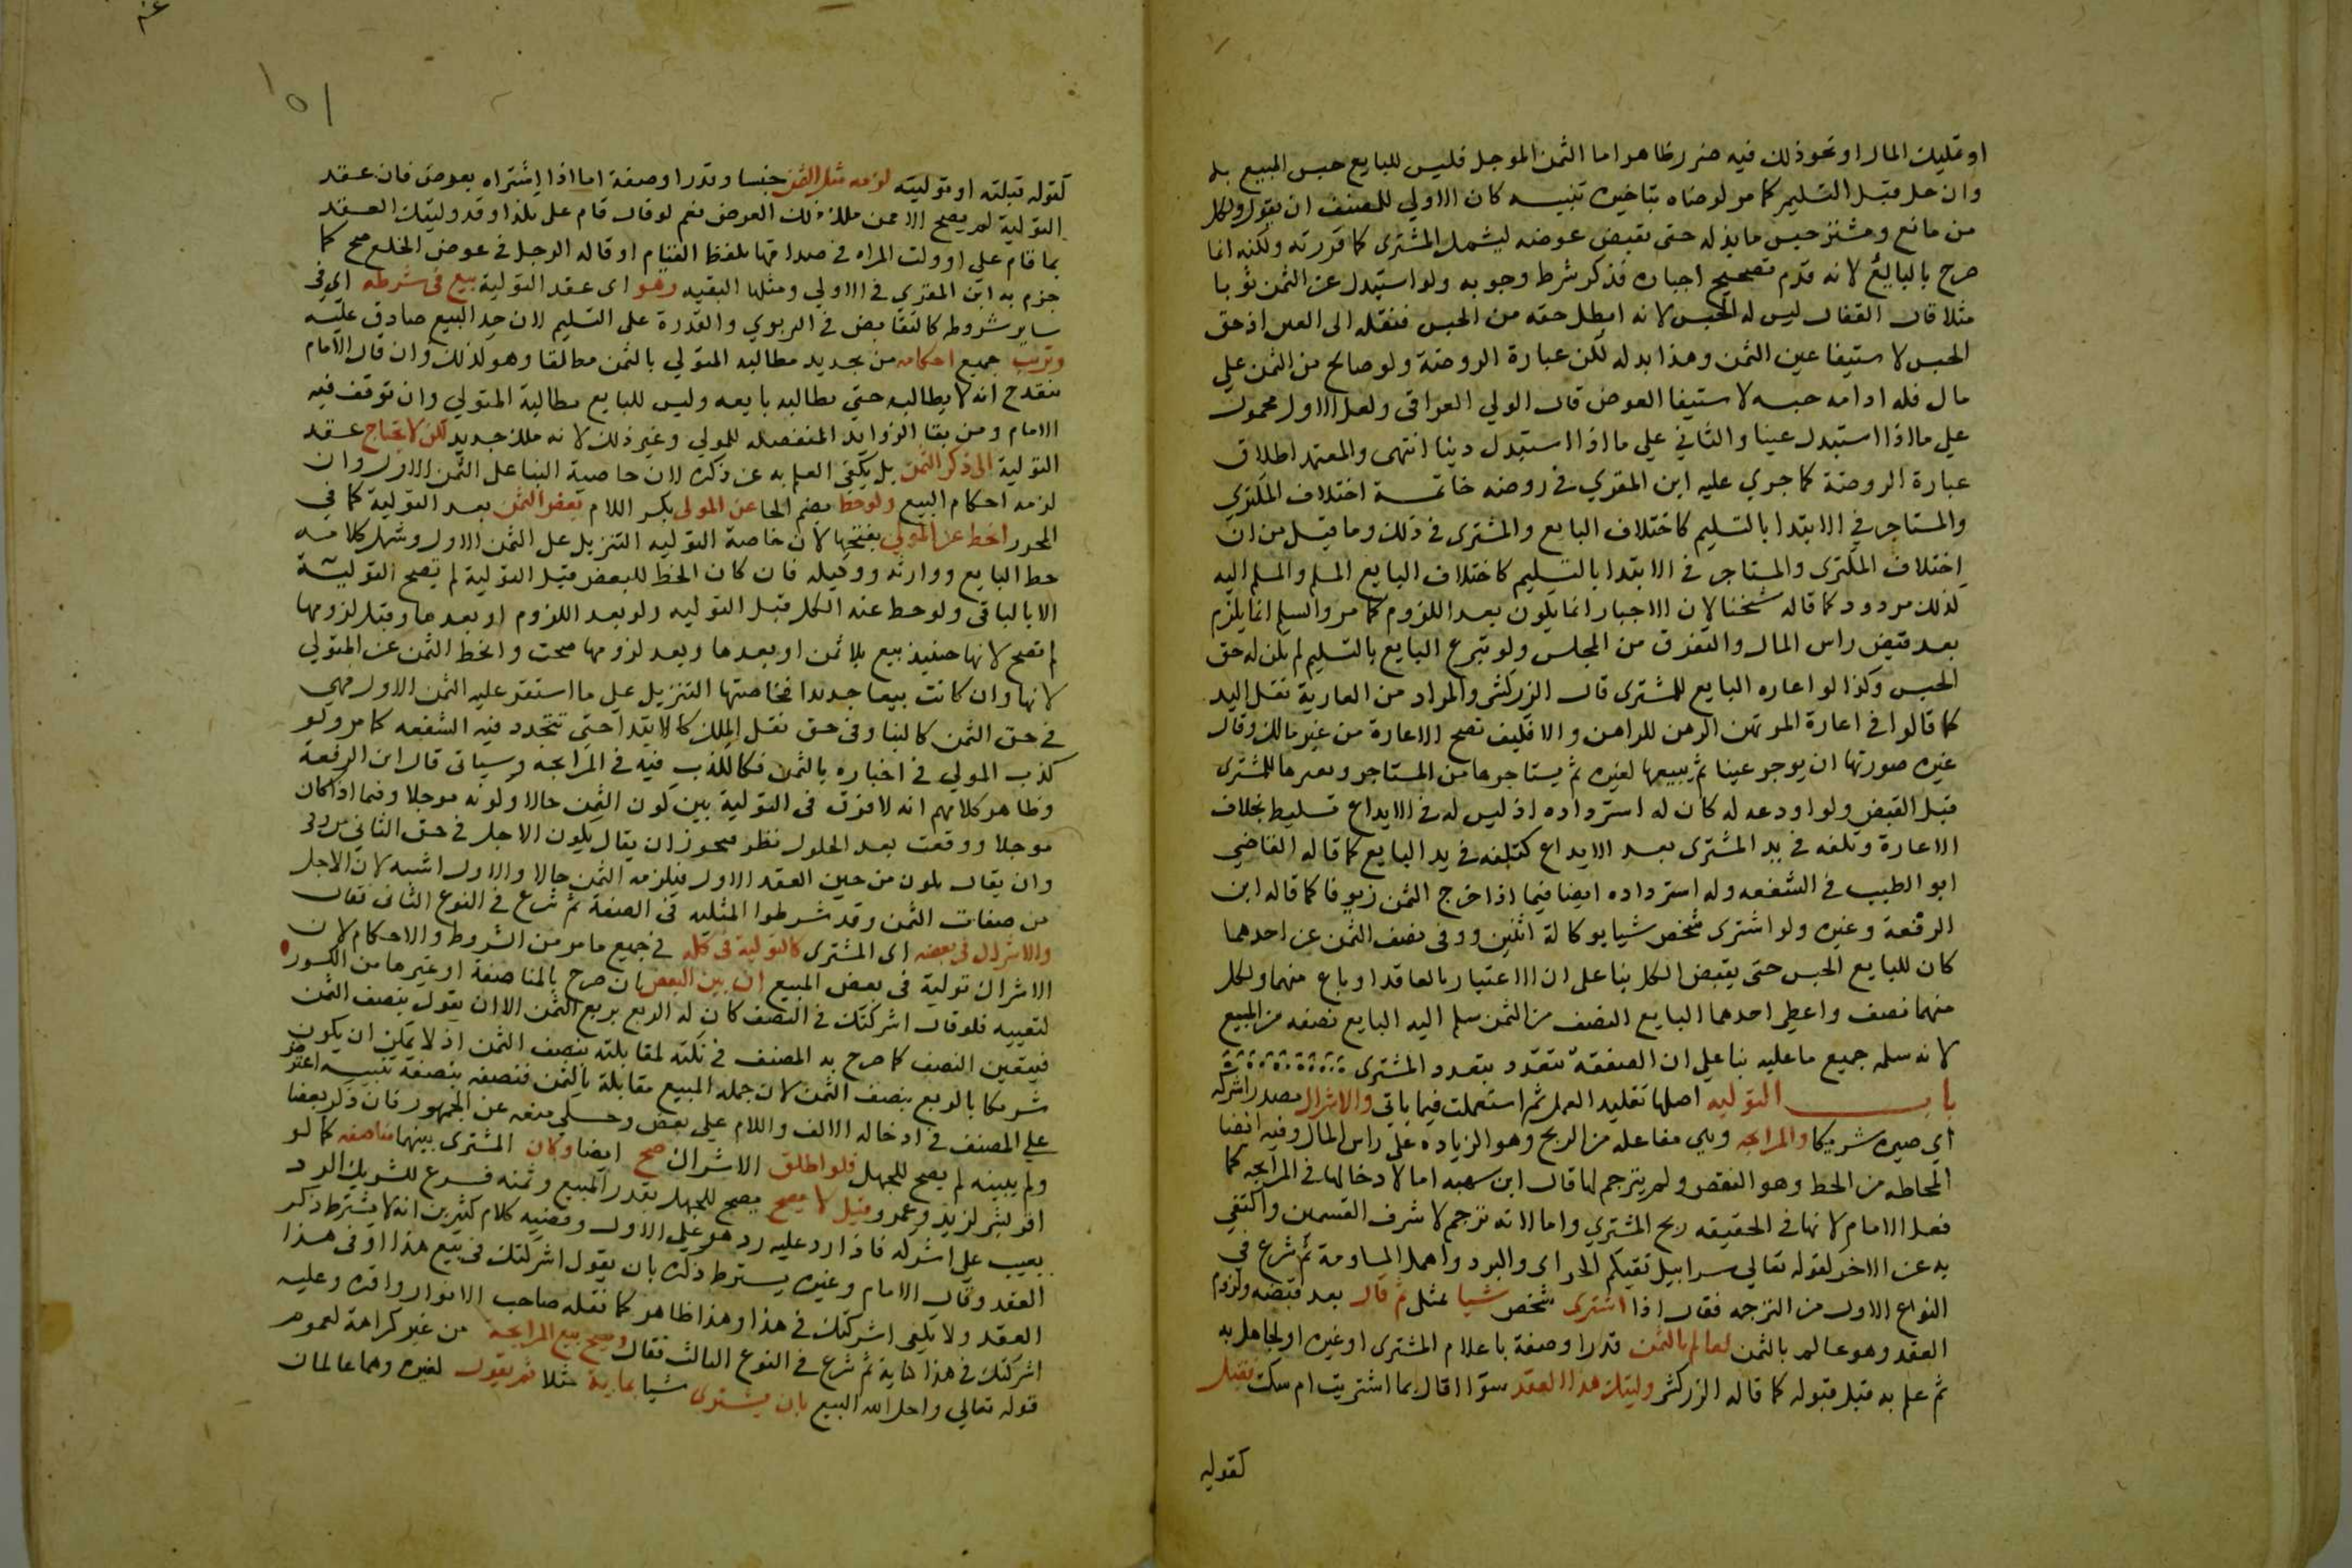 او تمليك المال او نحو ذلك فيه ضرر ظاهر اما الثمن الموجل فليس للبايع حبس المبيع به
وان حل قبل التسليم كما مر لرضاه بتاخيره تنبيه كان الاولي للمصنف ان يقول ولكل
من بايع ومشتر حبس ما بذله حتى يقبض عوضه ليشمل المشترى كما قررته ولكنه انما
صرح بالبايع لانه قدم تصحيح اجباره فذكر شرط وجوبه ولو استبدل عن الثمن ثوبا
مثلا قال القفال ليس له الحبس لانه ابطل حقه من الحبس فنقله الى العين اذ حق
الحبس لاستيفا عين الثمن وهذا بدله لكن عبارة الروضة ولو صالح من الثمن علي
مال فله ادامه حبسه لاستيفا العوض قال الولي العراقى ولعل الاول محمول
علي ما اذا استبدل عينا والثاني علي ما اذا استبدل دينا انتهى والمعتمد اطلاق
عبارة الروضة كما جري عليه ابن المقري في روضه خاتمة اختلاف المكتري
والمستاجر في الابتدا بالتسليم كاختلاف البايع والمشترى في ذلك وما قيل من ان
اختلاف المكترى والمستاجر في الابتدا بالتسليم كاختلاف البايع المسلم والمسلم اليه
لذلك مردود كما قاله شيخنا لان الاجبار انما يكون بعد اللزوم كما مر والسلم انما يلزم
بعد قبض راس المال والتفرق من المجلس ولو تبرع البايع بالتسليم لم يكن له حق
الحبس وكذا لو اعاره البايع للمشترى قال الزركشى والمراد من العارية نقل اليد
كما قالوا في اعارة المرتهن الرهن للراهن والا فكيف تصح الاعارة من غير مالك وقال
غيره صورتها ان يوجر عينا ثم يبيعها لغيره ثم يستاجرها من المستاجر ويعيرها للمشترى
قبل القبض ولو اودعه له كان له استرداده اذ ليس له في الايداع تسليط بخلاف
الاعارة وتلفه في يد المشترى بعد الايداع كتلفه في يد البايع كما قاله القاضي
ابو الطيب في الشفعه وله استرداده ايضا فيما اذا خرج الثمن زيوفا كما قاله ابن
الرفعة وغيره ولو اشترى شخص شيا بوكالة اثنين ووفى نصف الثمن عن احدهما
كان للبايع الحبس حتى يقبض الكل بنا على ان الاعتبار بالعاقد او باع منهما ولكل
منهما نصف واعطى احدهما البايع النصف من الثمن سلم اليه البايع نصفه من المبيع
لانه سلمه جميع ما عليه بنا علي ان الصفقة تتعدد بتعدد المشترى
باب التوليه اصلها تقليد العمل ثم استعملت فيما ياتي والاشراك مصدر اشركه
اي صيره شريكا والمرابحه وهي مفاعله من الربح وهو الزياده على راس المال وفيه ايضا
المحاطه من الحط وهو النقص ولم يترجم لها قال ابن شهبه اما لادخالها في المرابحه كما
فعل الامام لانها في الحقيقه ربح المشتري واما لانه ترجم لاشرف القسمين واكتفي
به عن الاخر لقوله تعالي سرابيل تقيكم الحر اى والبرد واهمل المساومة ثم شرع في
النوع الاول من الترجمه فقال اذا اشترى شخص شيا بمثلي ثم قال بعد قبضه ولزوم
العقد وهو عالم بالثمن لعالم بالثمن قدرا وصفة باعلام المشترى او غيره او لجاهل به
ثم علم به قبل قبوله كما قاله الزركشى وليتك هذا العقد سوا اقال بما اشتريت ام سكت فقبل
كقوله
١٥١
كقوله قبلته او توليته لزمه مثل الثمن جنسا وقدرا وصفة اما اذا اشتراه بعرض فان عقد
التولية لم يصح الا ممن ملك ذلك العرض نعم لو قال قام علي بكذا وقد وليتك العقد
بما قام علي او ولت المراه في صداقها بلفظ القيام او قاله الرجل في عوض الخلع صح كما
جزم به ابن المقري في الاولي ومثلها البقيه وهو اى عقد التولية بيع في شرطه اي في
ساير شروطه كالتقابض في الربوي والقدرة على التسليم لان حد البيع صادق عليه
وترتب جميع احكامه من تجديد مطالبه المتولي بالثمن مطلقا وهو لذلك وان قال الامام
ينقدح انه لا يطالبه حتي يطالبه بايعه وليس للبايع مطالبة المتولي وان توقف فيه
الامام ومن بقا الزوايد المنفصله للمولي وغير ذلك لانه ملك جديد لكن لا يحتاج عقد
التولية الى ذكر الثمن بل يكفى العلم به عن ذكره لان خاصية البنا على الثمن الاول وان
لزمه احكام البيع ولو حط بضم الحا عن المولى بكسر اللام بعض الثمن بعد التولية كما في
المحرر انحط عن المولي بفتحها لان خاصة التوليه التنزيل على الثمن الاول وشمل كلامه
حط البايع ووارثه ووكيله فان كان الحط للبعض قبل التولية لم تصح التولية
الا بالباقى ولو حط عنه الكل قبل التوليه ولو بعد اللزوم او بعدها وقبل لزومها
لم تصح لانها حينيذ بيع بلا ثمن او بعدها وبعد لزومها صحت وانحط الثمن عن المتولي
لانها وان كانت بيعا جديدا فخاصتها التنزيل علي ما استقر عليه الثمن الاول فهي
في حق الثمن كالبنا وفى حق نقل الملك كالابتدا حتى تتجدد فيه الشفعه كما مر ولو
كذب المولي في اخباره بالثمن فكالكذب فيه في المرابحه وسياتى قال ابن الرفعة
وظاهر كلامهم انه لا فرق في التولية بين كون الثمن حالا وكونه موجلا وفيما اذا كان
موجلا ووقعت بعد الحلول نظر فيجوز ان يقال يكون الاجل في حق الثاني من وقتها
وان يقال يكون من حين العقد الاول فيلزمه الثمن حالا والاول اشبه لان الاجل
من صفات الثمن وقد شرطوا المثليه في الصفة ثم شرع في النوع الثاني فقال
والاشراك في بعضه اى المشترى كالتولية في كله في جميع ما مر من الشروط والاحكام لان
الاشراك تولية في بعض المبيع ان بين البعض بان صرح بالمناصفة او غيرها من الكسور
لتعيينه فلو قال اشركتك في النصف كان له الربع بربع الثمن الا ان يقول بنصف الثمن
فيتعين النصف كما صرح به المصنف في نكته لمقابلته بنصف الثمن اذ لا يمكن ان يكون
شريكا بالربع بنصف الثمن لان جمله المبيع مقابلة بالثمن فنصفه بنصفه تنبيه اعترض
علي المصنف في ادخاله الالف واللام علي بعض وحكي منعه عن الجمهور فان ذكر بعضا
ولم يبينه لم يصح للجهل فلو اطلق الاشراك صح ايضا وكان المشترى بينهما مناصفه كما لو
اقر بشي لزيد وعمرو وقيل لا يصح يصح للجهل بقدر المبيع وثمنه فرع للشريك الرد
بعيب على اشركه فاذا رد عليه رد هو علي الاول وقضيه كلام كثيرين انه لا يشترط ذكر
العقد وقال الامام وغيره يشترط ذكره بان يقول اشركتك في بيع هذا او في هذا
العقد ولا يكفى اشركتك في هذا وهذا ظاهر كما نقله صاحب الانوار واقره وعليه
اشركتك في هذا كناية ثم شرع في النوع الثالث فقال ويصح بيع المرابحة من غير كراهة لعموم
قوله تعالي واحل الله البيع بان يشترى شيا بماية مثلا ثم يقول لغيره وهما عالمان